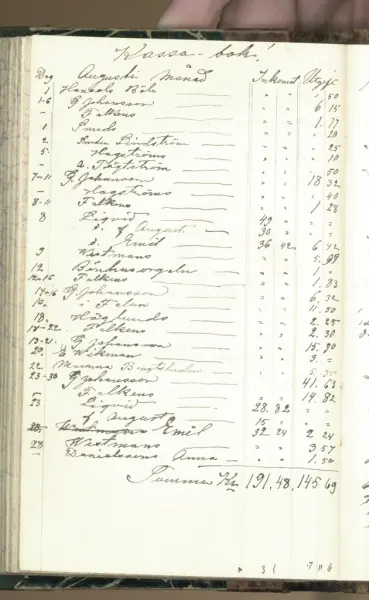 Kassa-bok!
Dag Augusti Månad Inkomst Utgift
1 " " " 50
1-6 G Johansson " " 6 15
- Falkens " " 1. 77
1 Smeds " " " 20
2 Lindström " " " 25
5 Hagströms " " " 10
- A. Thytström " " " 50
7-11 G. Johansson " " 18 32
- Hagströms " " " 40
8-11 Falkens " " 1 28
8 Liqvid 49 " " "
d. af August 30 " " "
d. Emil 36 42 6 42
9 Westmans " " 5.
12 Bönhusorgeln " " 1. "
12-15 Falkens " " 1. 83
14-16 G Johansson " " 6. 32
" " 11. 50
18. Höglunds " " 2. 25
18-22 Falkens " " 2. 30
19-21. G Johansson " " 15. 80
20. E Wikman " " 3. "
22 Mamma " "
23-30 G Johansson " " 41. 63
- Falkens " " 14. 82
23 Liqvid 28. 82 " "
af August 15 " " "
Emil 32 24 2 24
28 Westmans " " 3 57
- Danielssons Anna " " 1. 50
Summa Kr 191,48, 145 69